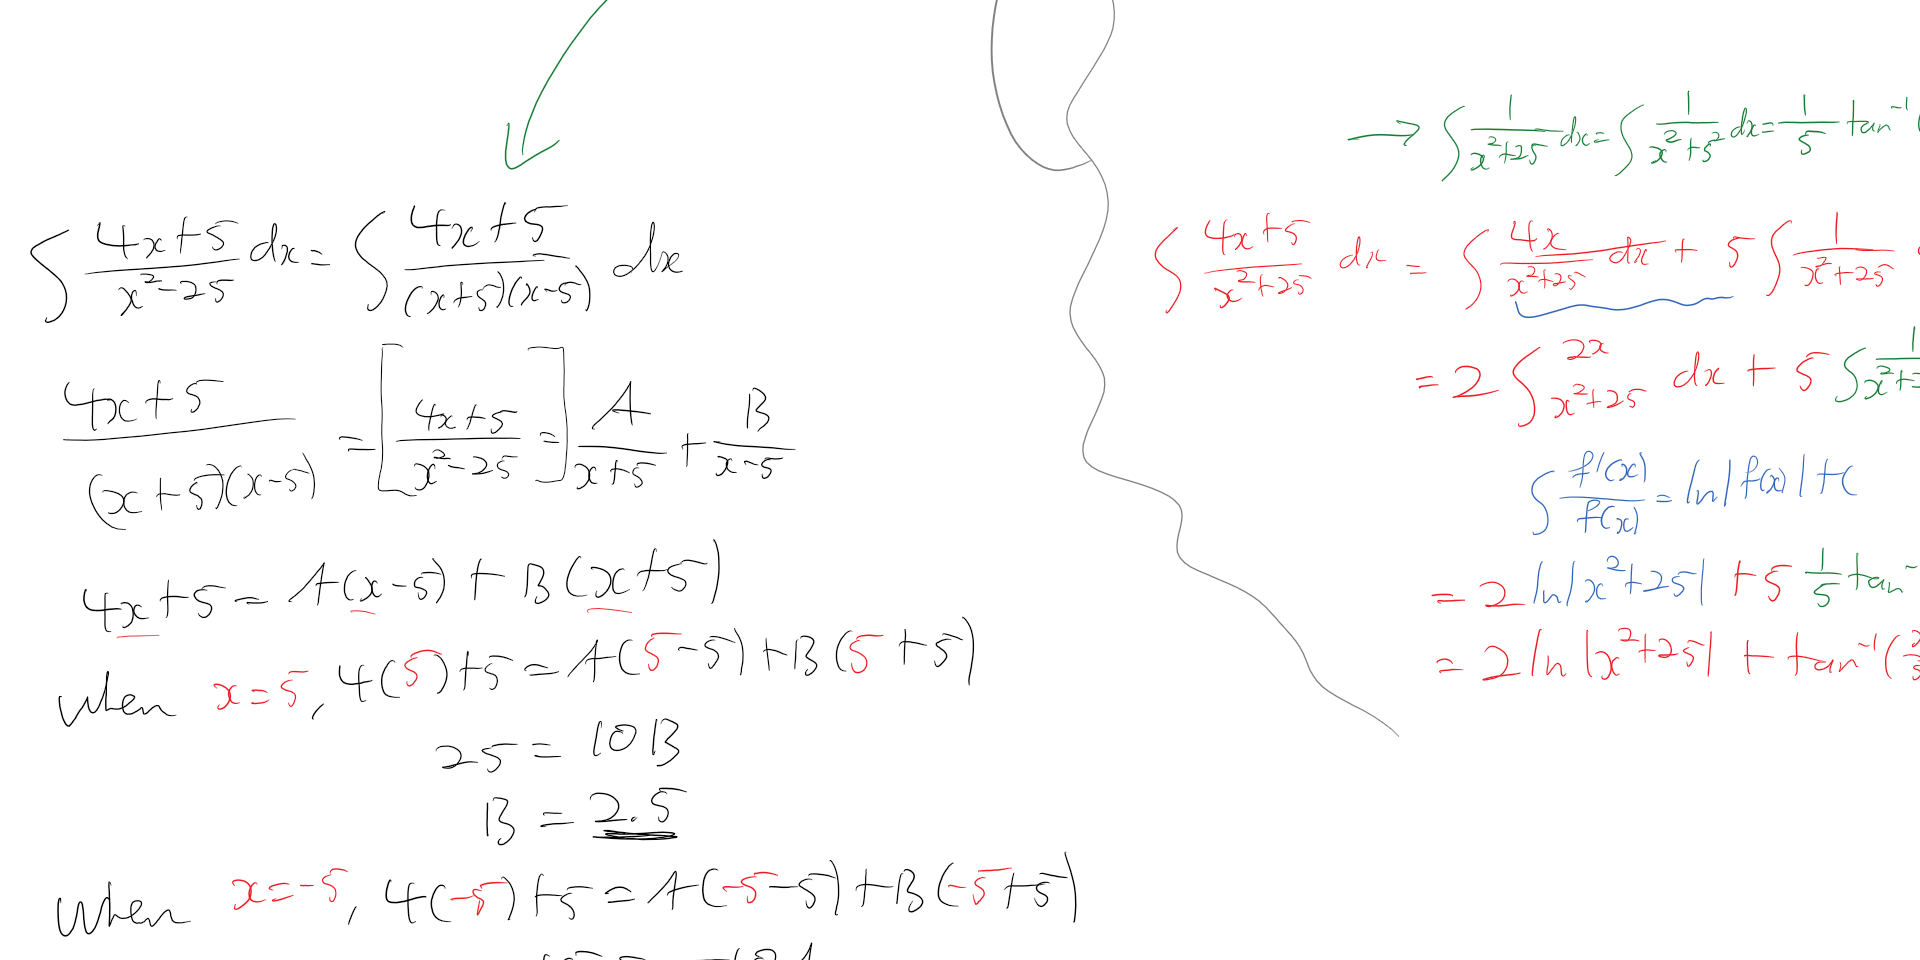 ∫ (4x+5)/(x²-25) dx = ∫ (4x+5)/((x+5)(x-5)) dx
(4x+5)/((x+5)(x-5)) = [(4x+5)/(x²-25) =] A/(x+5) + B/(x-5)
4x+5 = A(x-5) + B(x+5)
when x=5, 4(5)+5 = A(5-5) + B(5+5)
25 = 10B
B = 2.5
when x=-5, 4(-5)+5 = A(-5-5) + B(-5+5)
→ ∫ 1/(x²+25) dx = ∫ 1/(x²+5²) dx = 1/5 tan⁻¹(
∫ (4x+5)/(x²+25) dx = ∫ 4x/(x²+25) dx + 5 ∫ 1/(x²+25)
= 2 ∫ 2x/(x²+25) dx + 5 ∫ 1/(x²+
∫ f'(x)/f(x) = ln|f(x)| + C
= 2 ln|x²+25| + 5 1/5 tan⁻
= 2 ln|x²+25| + tan⁻¹(